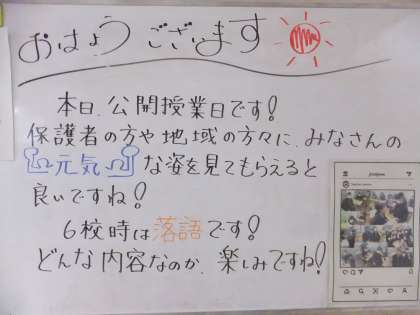 おはようございます
本日、公開授業日です!
保護者の方や地域の方々に、みなさんの
元気な姿を見てもらえると
良いですね!
6校時は落語です!
どんな内容なのか、楽しみですね!